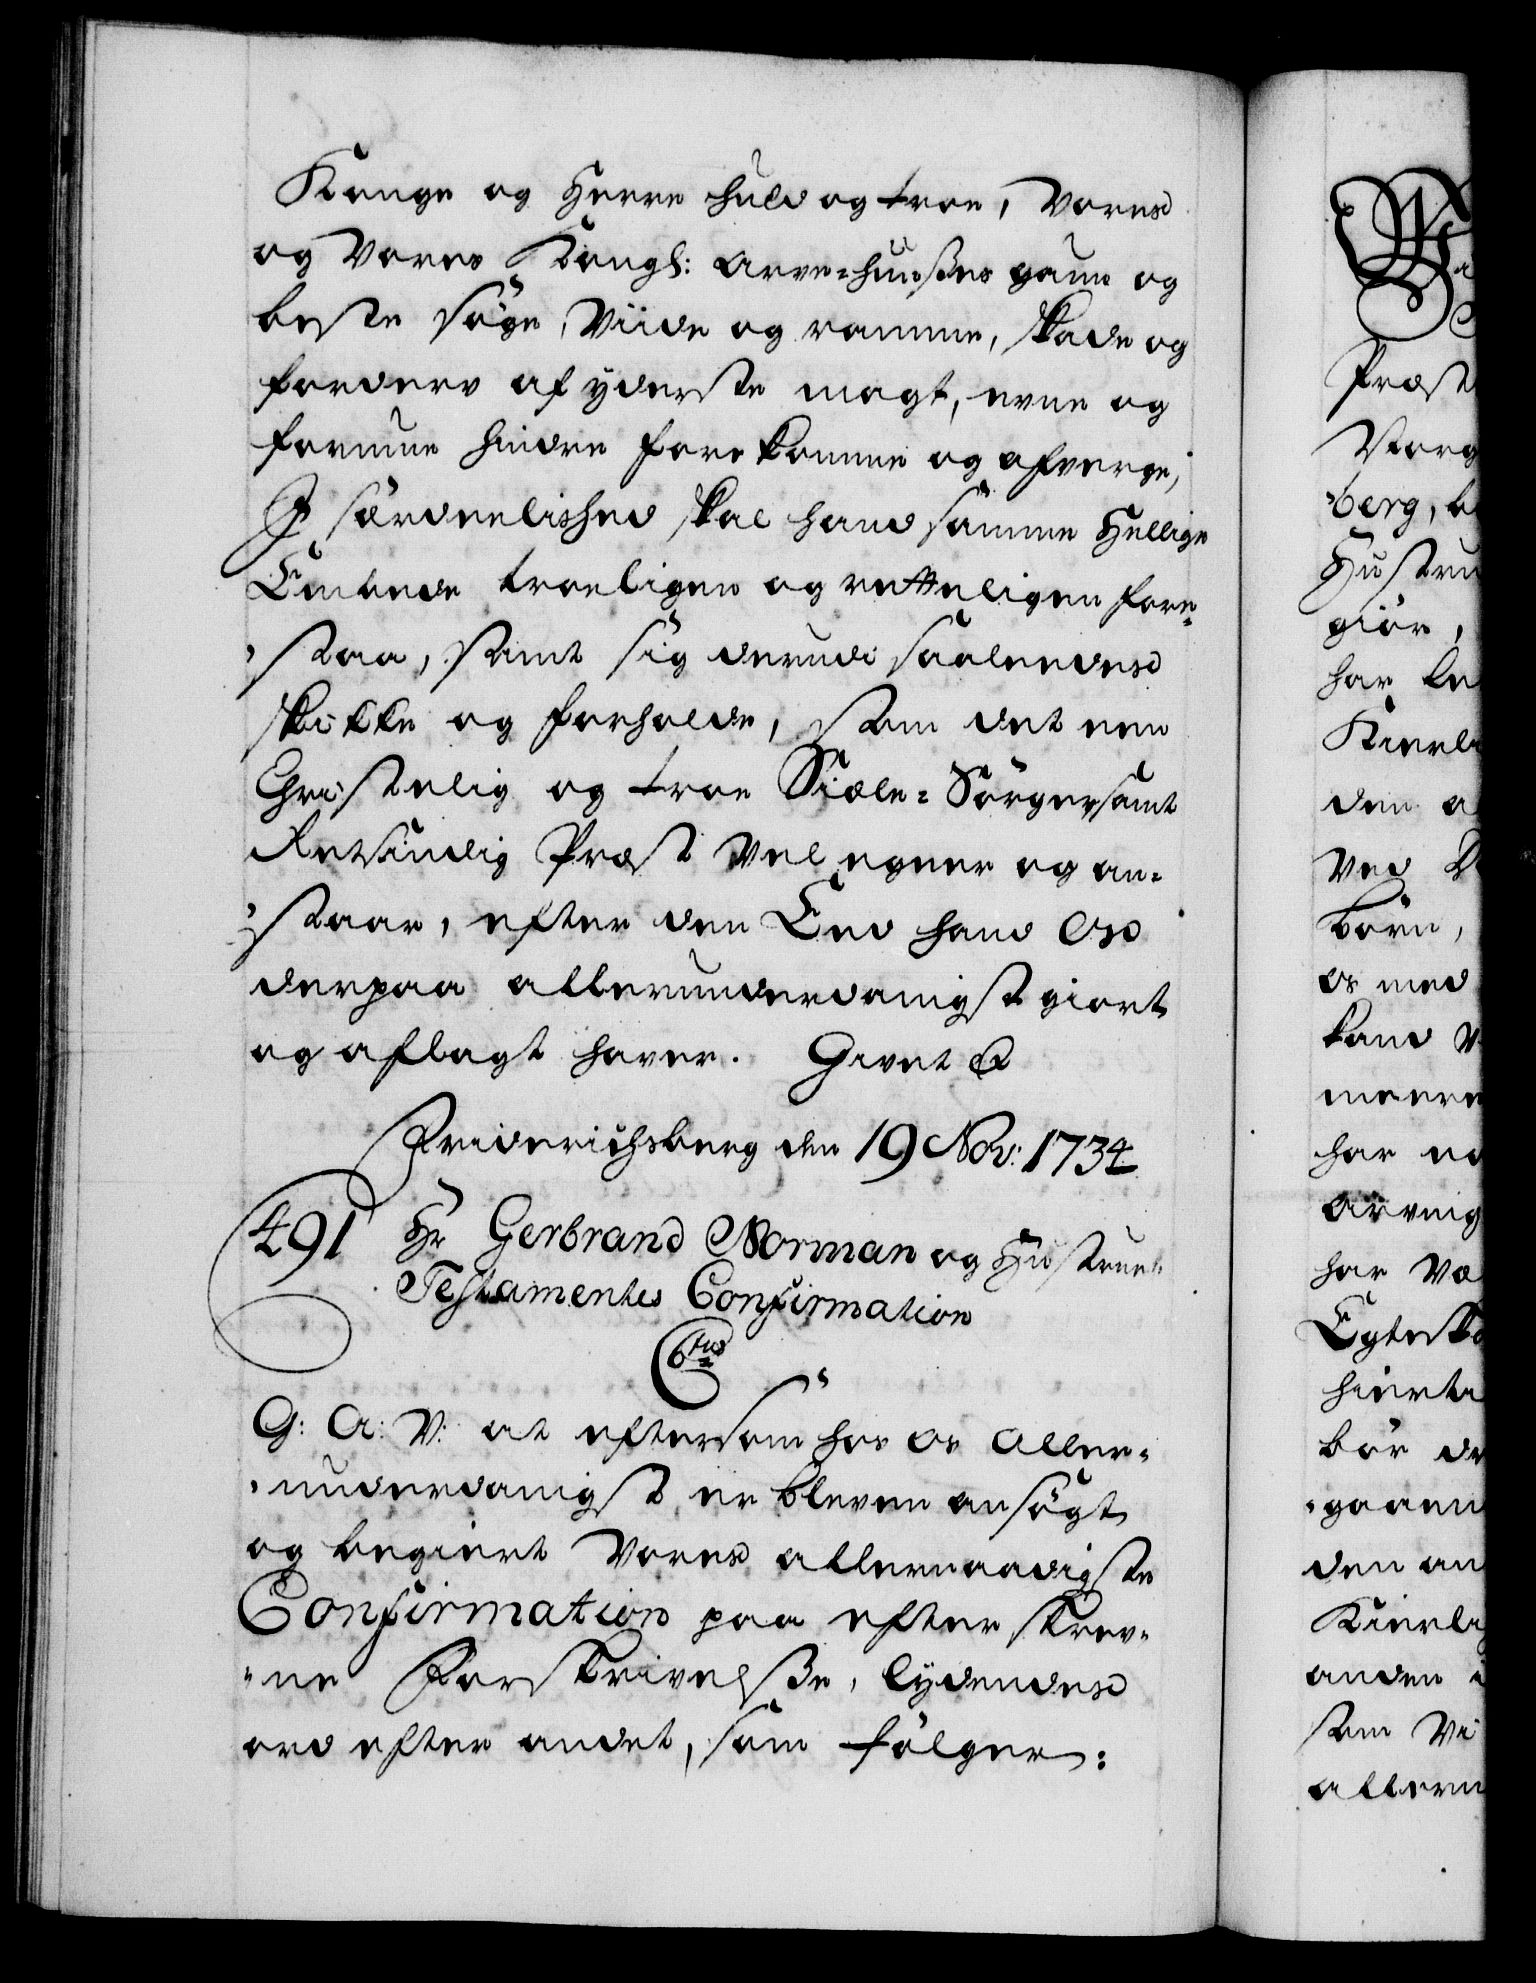 Konge og Herre huld og troe, Vores
og Vores Kongl: Arve-Huuses gaun og
beste søge, Viide og ramme, skade og
forderv af yderste magt, evne og
formue hindre forekomme og afverge,
J særdeelished skal hand samme Hellige
Embede troeligen og retteligen fore-
staa, samt sig derudi saaleedes
skikke og forholde, som det een
Christelig og troe Siæle-Sørger samt
Retsindig Præst vel egner og an-
staar, efter den Eed hand Os
derpaa allerunderdanigst giort
og aflagt haver. Givet &
Friderichsberg den 19 Nov: 1734
491 Hr Gerbrand Norman og Hustrues
Testamentes Confirmation
6tus
G: A: V: at eftersom hos Os Aller-
underdanigst er bleven ansøgt
og begiert Vores allernaadigste
Confirmation paa efterskrev-
ne Forskrivelse, lydendes
ord efter andet, som følger:
Præst
berg,
Hustru
giør,
har
den
ved
børn,
os med
kand
meere
har
har
hierte
bør
gaaen
den an
anden
som Vi
allern